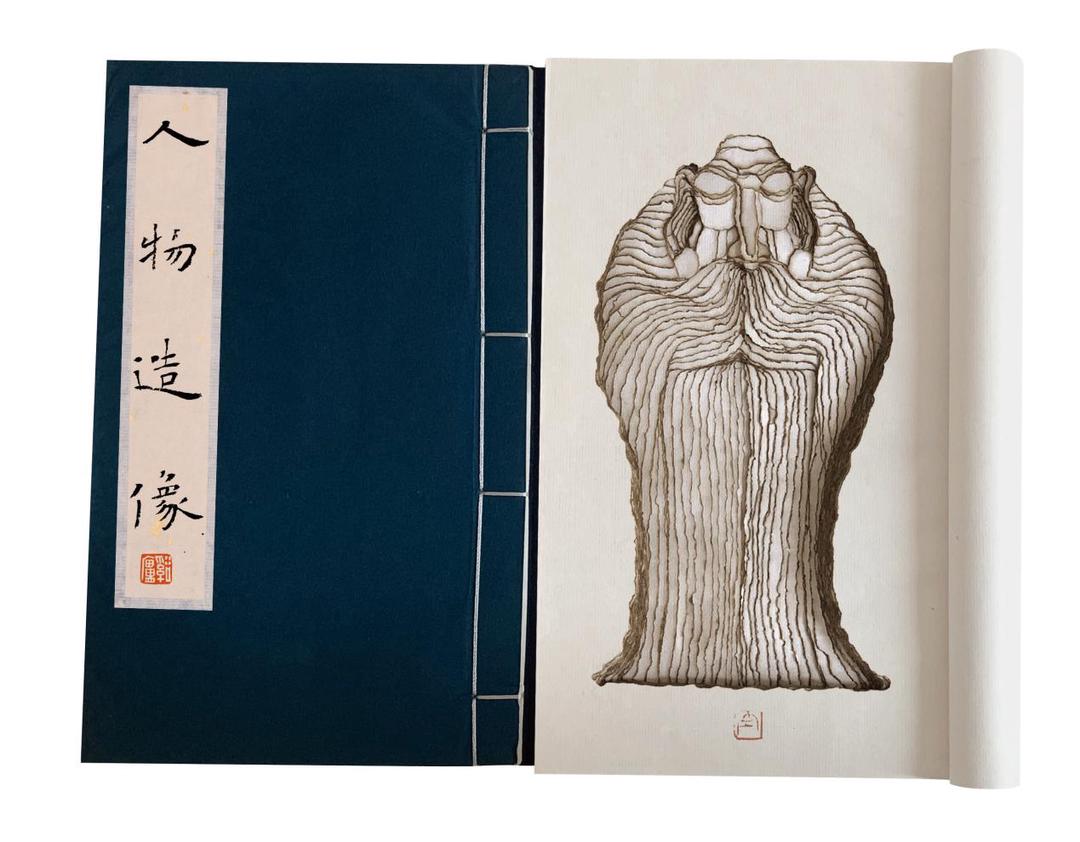 人物造像